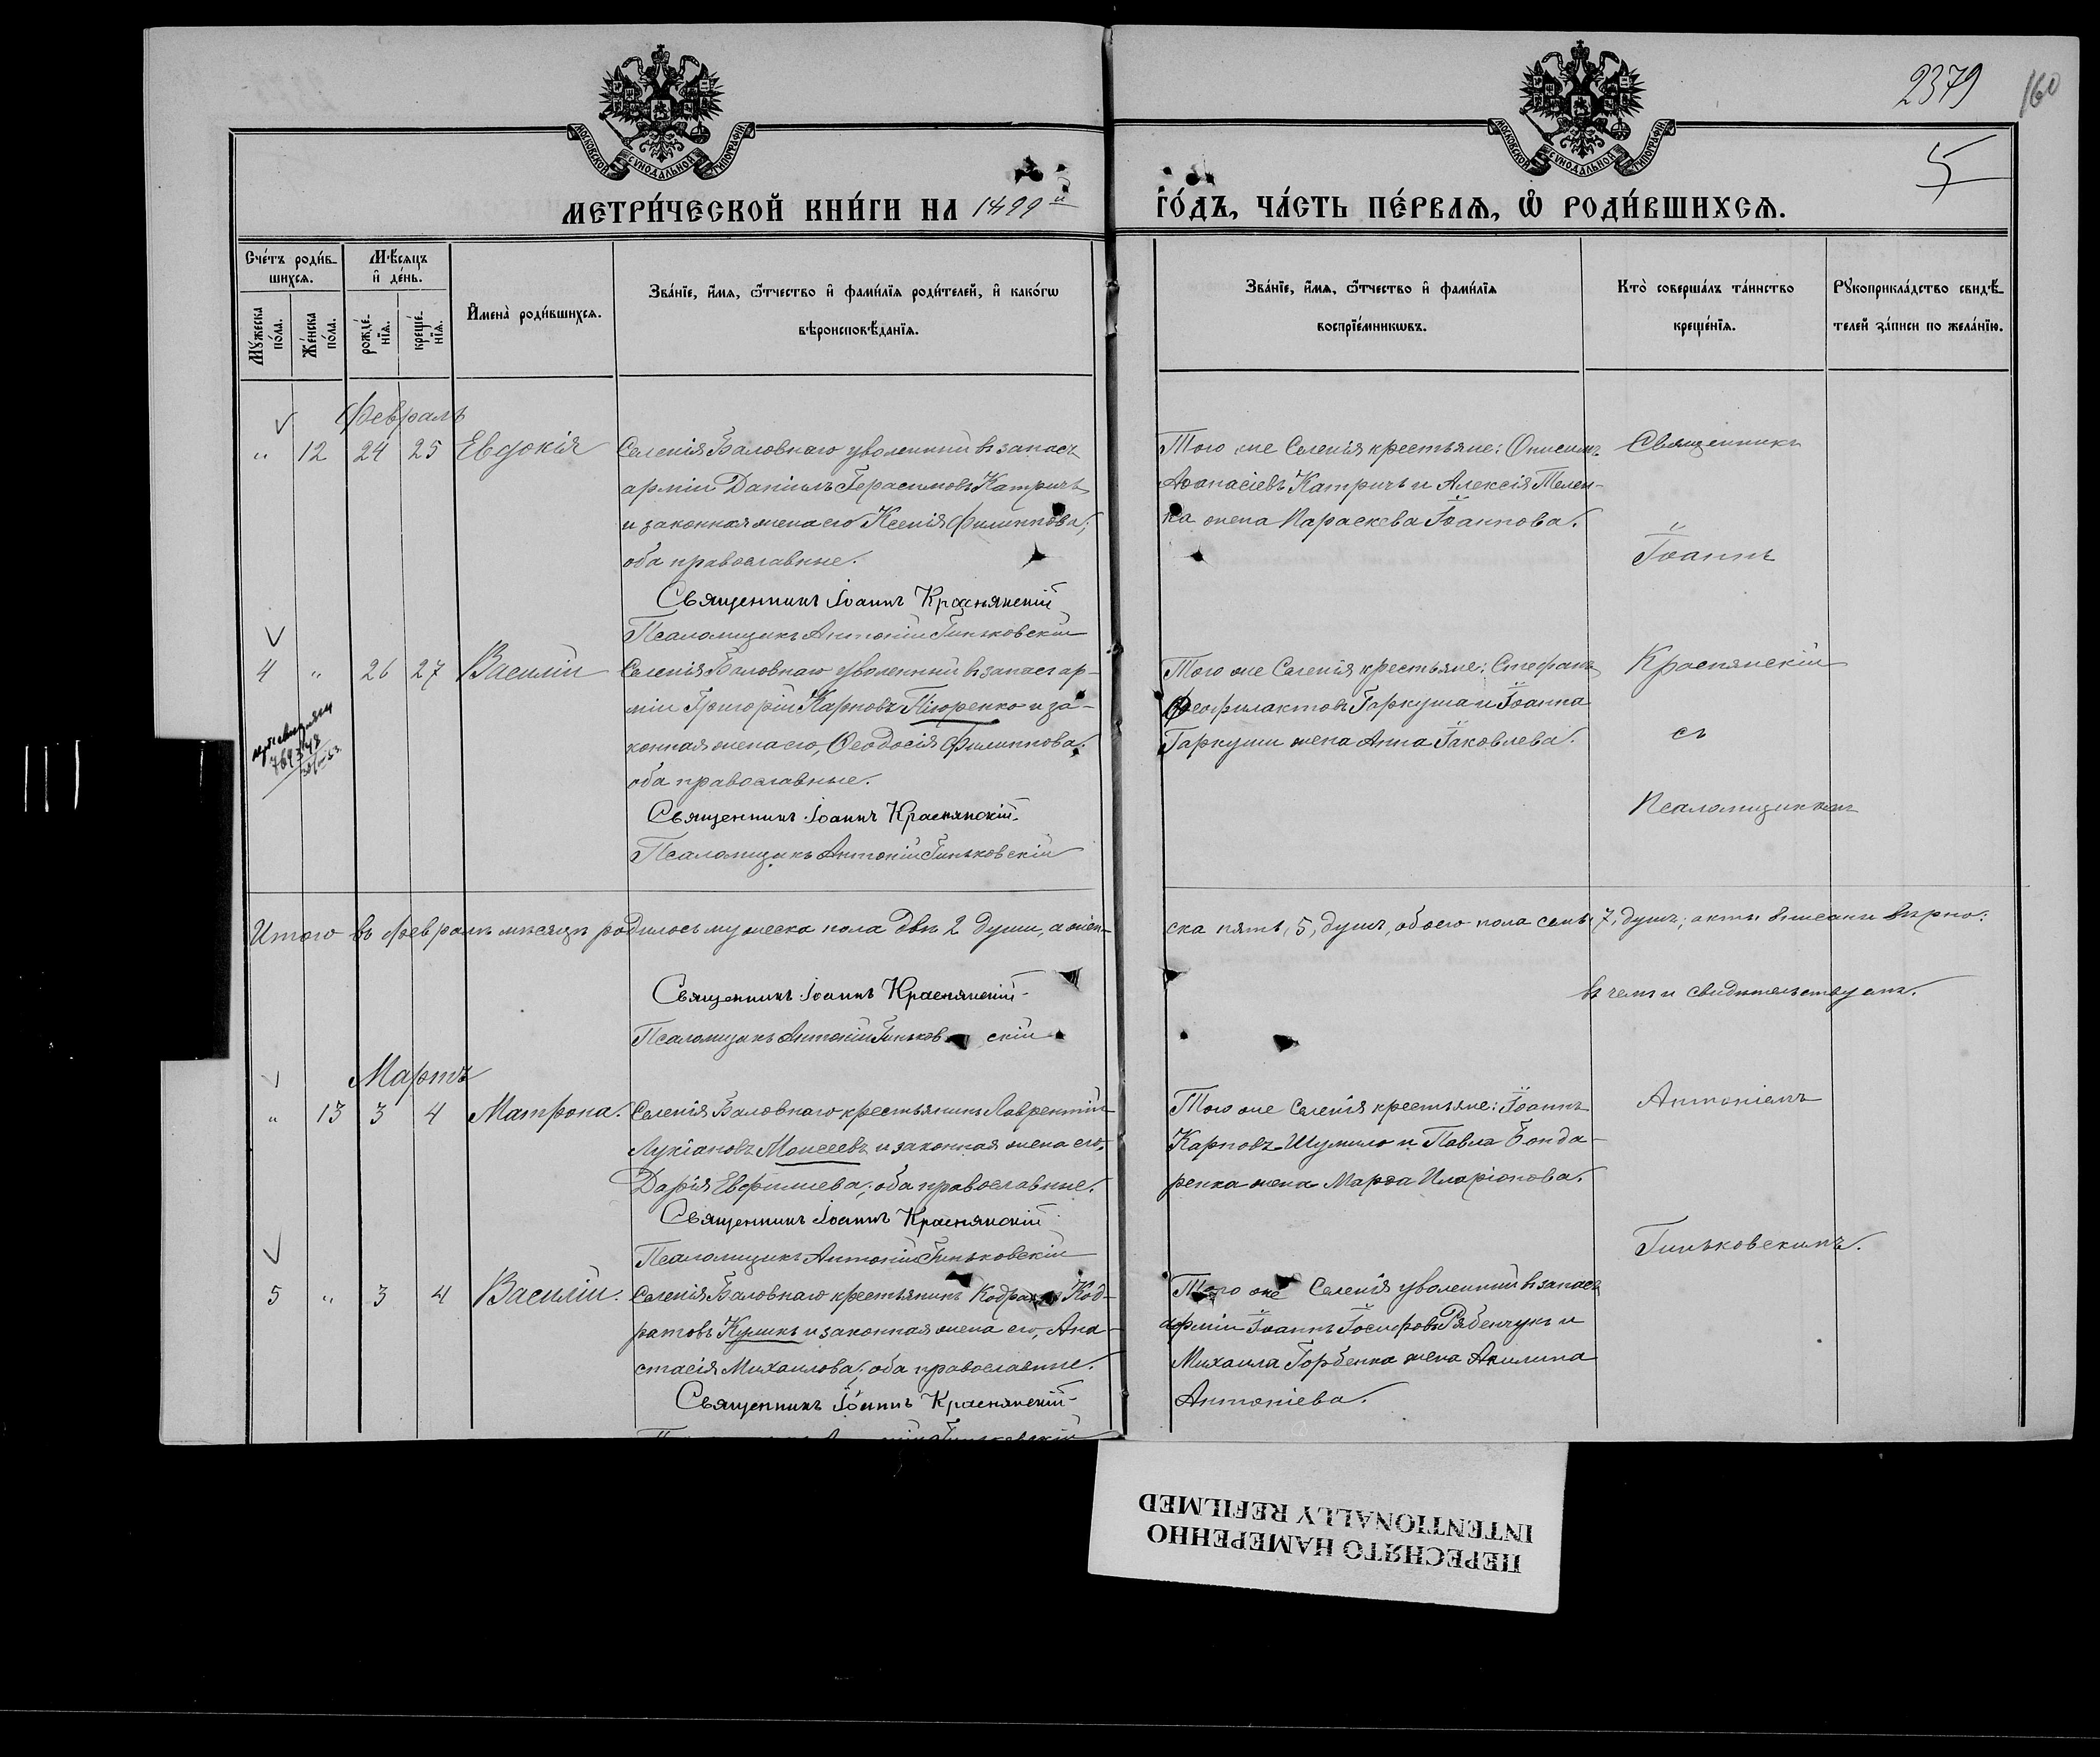 2379
160
5
МОСКОВСКОЙ СѴНОДАЛЬНОЙ ТИПОГРАФІИ
МОСКОВСКОЙ СѴНОДАЛЬНОЙ ТИПОГРАФІИ
МЕТРИ́ЧЕСКОЙ КНИ́ГИ НА 1899й
ГО́ДЪ, ЧА́СТЬ ПЕ́РВАѦ, Ѡ҆ РОДИ́ВШИХСѦ.
Сче́тъ роди́в-
шихсѧ.
Мѣ́сѧцъ
и҆ де́нь.
Му́жеска
по́ла.
Же́нска
по́ла.
рожде́-
нїѧ.
креще́-
нїѧ.
И҆мена̀ роди́вшихсѧ.
Зва́нїе, и҆́мѧ, ѻ҆́тчество и҆ фами́лїѧ роди́телей, и҆ како́гѡ
вѣроисповѣ́данїѧ.
Зва́нїе, и҆́мѧ, ѻ҆́тчество и҆ фами́лїѧ
воспрїе́мникѡвъ.
Кто̀ соверша́лъ та́инство
креще́нїѧ.
Рꙋкоприкла́дство свидѣ́-
телей за́писи по жела́нїю.
Февраль
" 12 24 25 Евдокія
Селенія Баловнаго уволенный въ запасъ
арміи Даніилъ Герасимовъ Катричъ
и законная жена его Ксенія Филиппова;
оба православные.
Священникъ Іоаннъ Краснянскій
Псаломщикъ Антоній Гиньковскій
Того же Селенія крестьяне: Онисимъ
Аѳанасіевъ Катричъ и Алексія Телен-
ка жена Параскева Іоаннова.
Священникъ
Іоаннъ
4 " 26 27 Василій
Селенія Баловнаго уволенный въ запасъ ар-
міи Григорій Карповъ Пігоренко и за-
конная жена его, Ѳеодосія Филиппова.
оба православные.
Священникъ Іоаннъ Краснянскій.
Псаломщикъ Антоній Гиньковскій
Того же Селенія крестьяне: Стефанъ
Феофилактовъ Гаркуша и Іоанна
Гаркуши жена Анна Іаковлева.
Краснянскій
съ
Псаломщикомъ
Итого въ Февралѣ мѣсяцѣ родилось мужеска пола двѣ 2 души, а жен-
ска пять, 5, душъ, обоего пола семь, 7, душъ; акты вписаны вѣрно:
въ чемъ и свидѣтельствуемъ.
Священникъ Іоаннъ Краснянскій
Псаломщикъ Антоній Гиньковскій
Мартъ
" 13 3 4 Матрона.
Селенія Баловнаго крестьянинъ Лаврентій
Лукіановъ Моисеевъ и законная жена его,
Дарія Евфимиева; оба православные.
Священникъ Іоаннъ Краснянскій
Псаломщикъ Антоній Гиньковскій
Того же Селенія крестьяне: Іоаннъ
Карповъ Шумило и Павла Бонда-
ренка жена Марѳа Иларіонова.
Антоніемъ
Гиньковскимъ.
5 " 3 4 Василій.
Селенія Баловнаго крестьянинъ Кодратъ Код-
ратовъ Куликъ и законная жена его, Ана-
стасія Михаилова; оба православные.
Священникъ Іоаннъ Краснянскій
Того же Селенія уволенный въ запасъ
арміи Іоаннъ Іосифовъ Рябенчукъ и
Михаила Горбенка жена Акилина
Антоніева.
ПЕРЕСНЯТО НАМЕРЕННО
INTENTIONALLY REFILMED